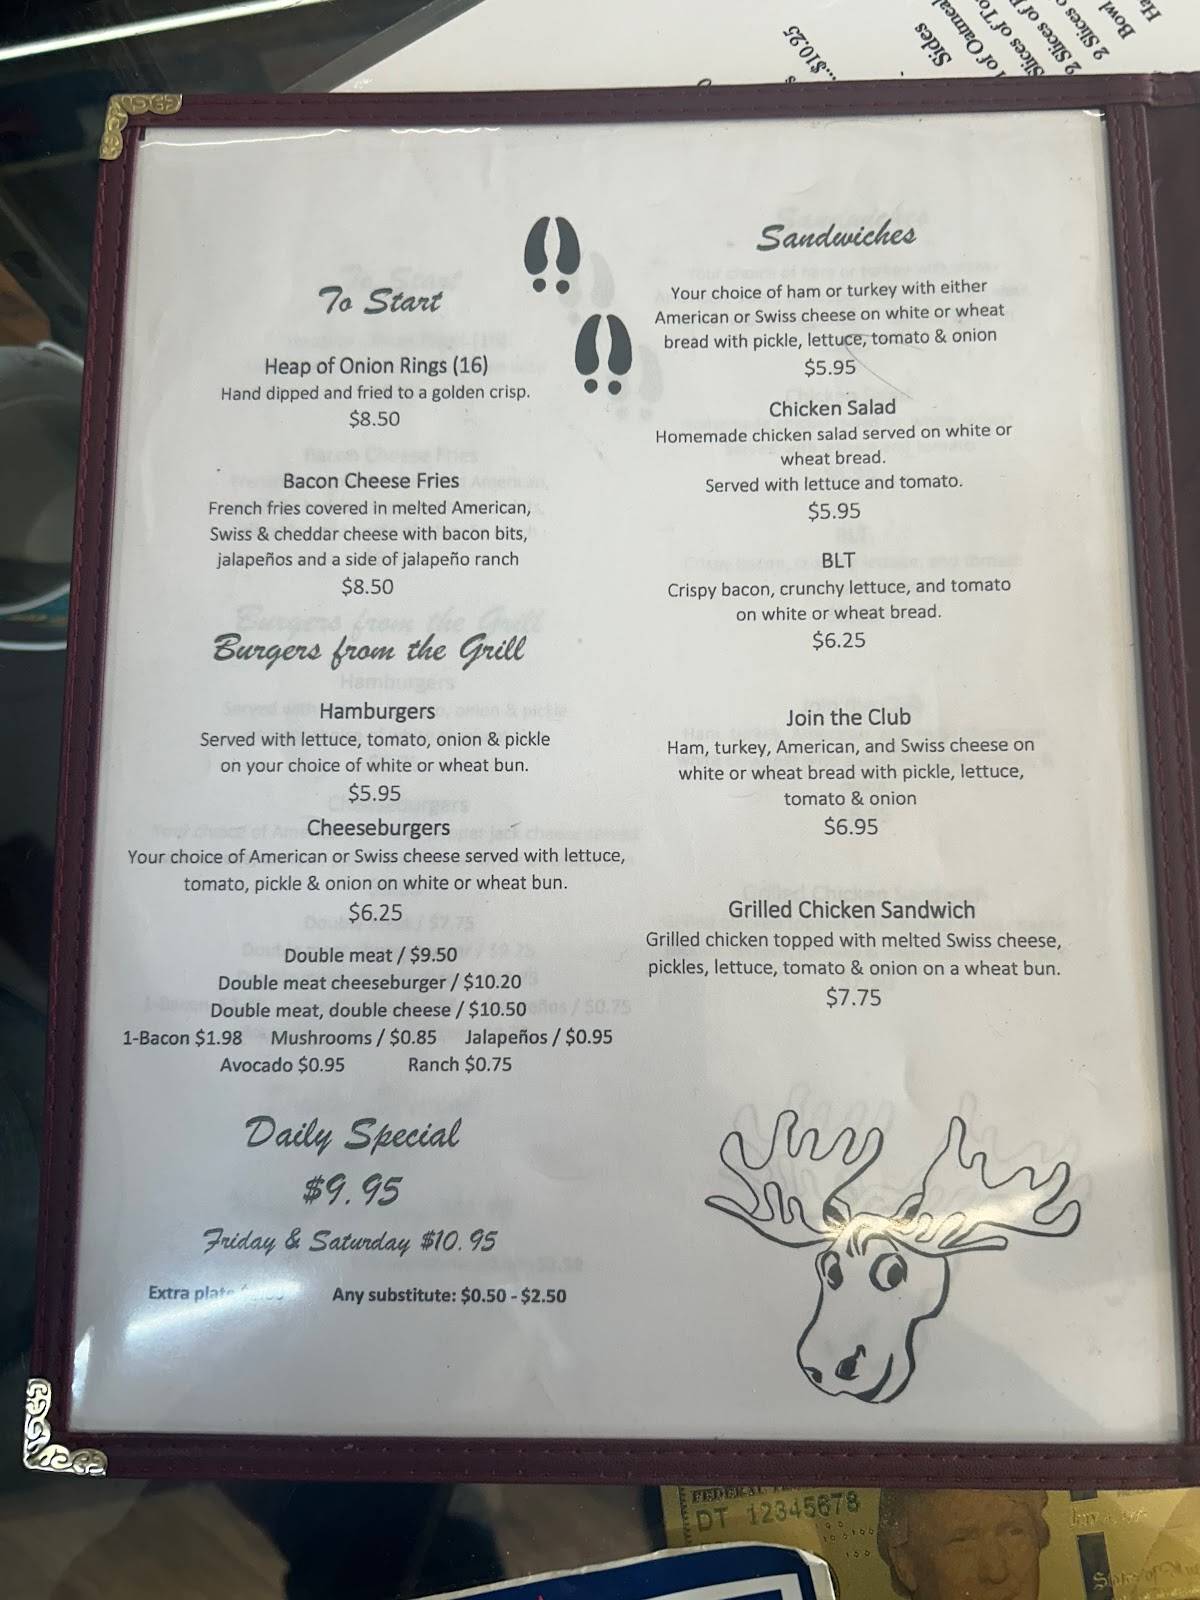 ...$10.25
Sides
of Oatmeal
2 Slices
Bowl
To Start
Heap of Onion Rings (16)
Hand dipped and fried to a golden crisp.
$8.50
Bacon Cheese Fries
French fries covered in melted American,
Swiss & cheddar cheese with bacon bits,
jalapeños and a side of jalapeño ranch
$8.50
Burgers from the Grill
Hamburgers
Served with lettuce, tomato, onion & pickle
on your choice of white or wheat bun.
$5.95
Cheeseburgers
Your choice of American or Swiss cheese served with lettuce,
tomato, pickle & onion on white or wheat bun.
$6.25
Double meat / $9.50
Double meat cheeseburger / $10.20
Double meat, double cheese / $10.50
1-Bacon $1.98 Mushrooms / $0.85 Jalapeños / $0.95
Avocado $0.95 Ranch $0.75
Daily Special
$9.95
Friday & Saturday $10.95
Extra plate Any substitute: $0.50 - $2.50
Sandwiches
Your choice of ham or turkey with either
American or Swiss cheese on white or wheat
bread with pickle, lettuce, tomato & onion
$5.95
Chicken Salad
Homemade chicken salad served on white or
wheat bread.
Served with lettuce and tomato.
$5.95
BLT
Crispy bacon, crunchy lettuce, and tomato
on white or wheat bread.
$6.25
Join the Club
Ham, turkey, American, and Swiss cheese on
white or wheat bread with pickle, lettuce,
tomato & onion
$6.95
Grilled Chicken Sandwich
Grilled chicken topped with melted Swiss cheese,
pickles, lettuce, tomato & onion on a wheat bun.
$7.75
FEDERAL
DT 12345678